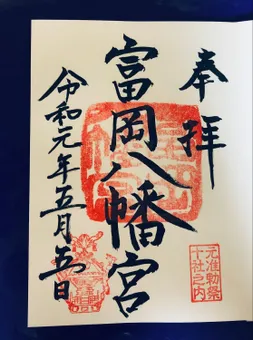 奉拝
富岡八幡宮
令和元年五月五日
元准勅祭
十社之内